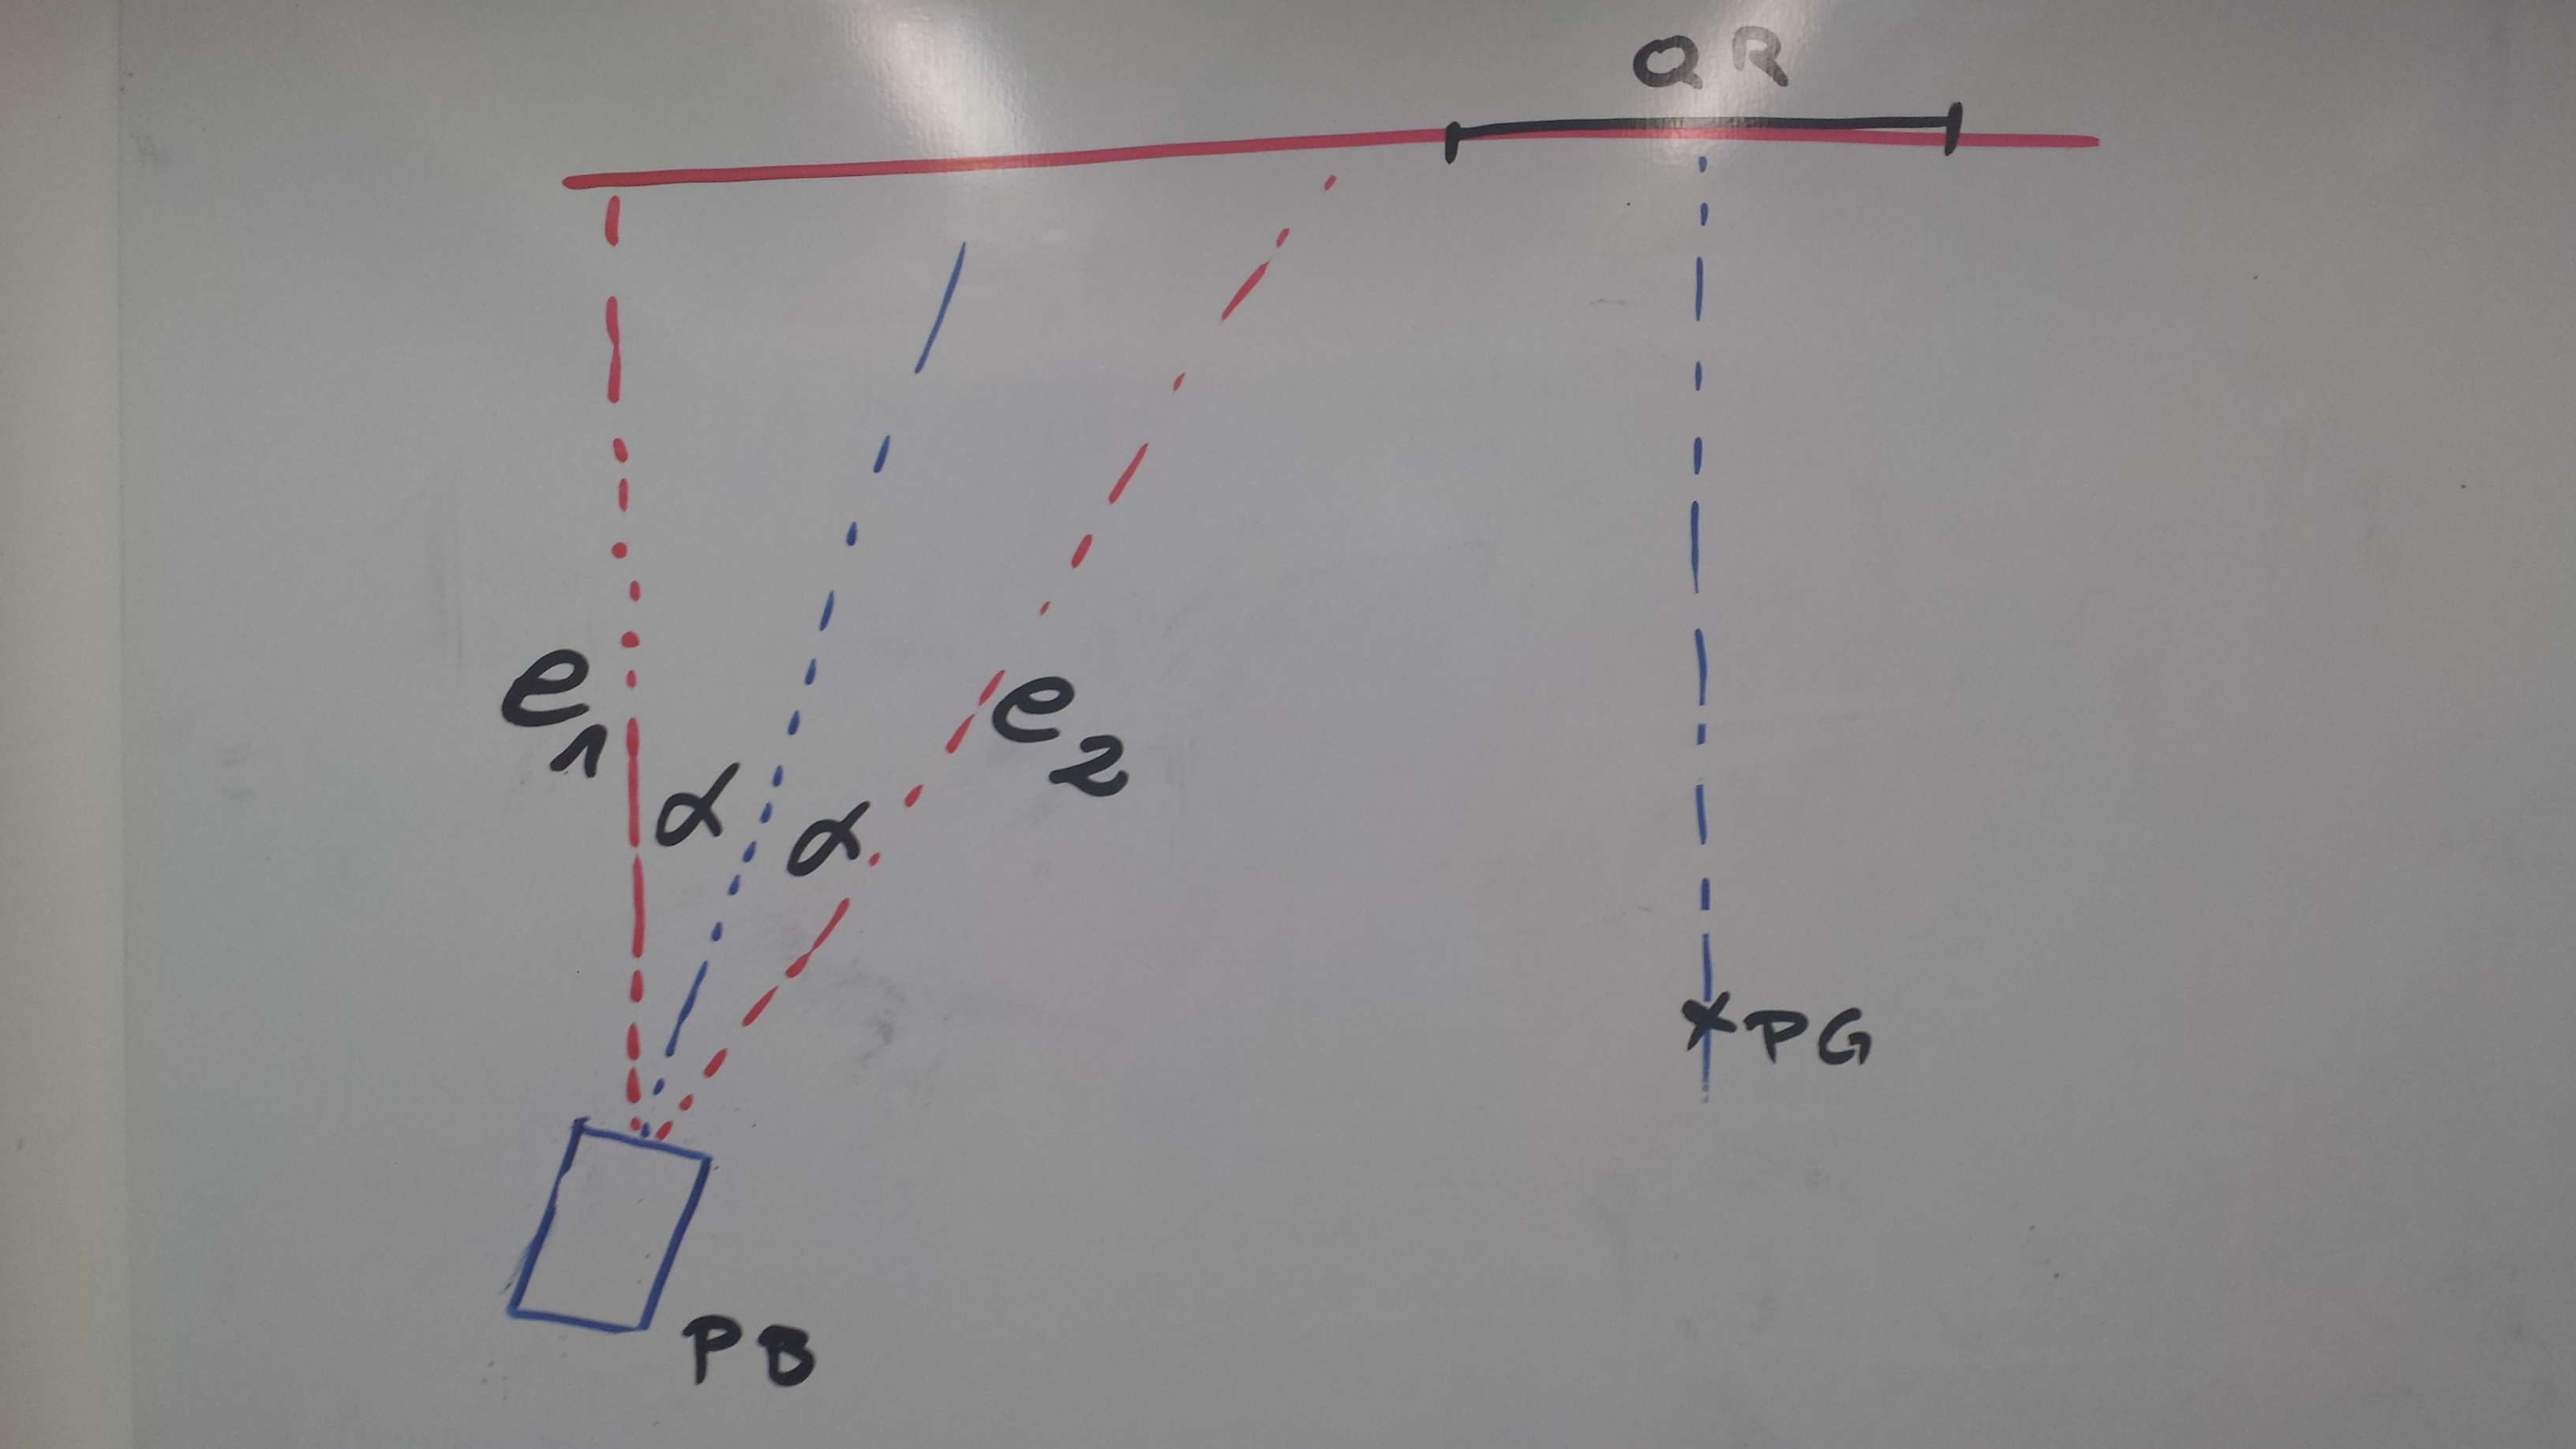 QR
e1
e2
α
α
PG
PB